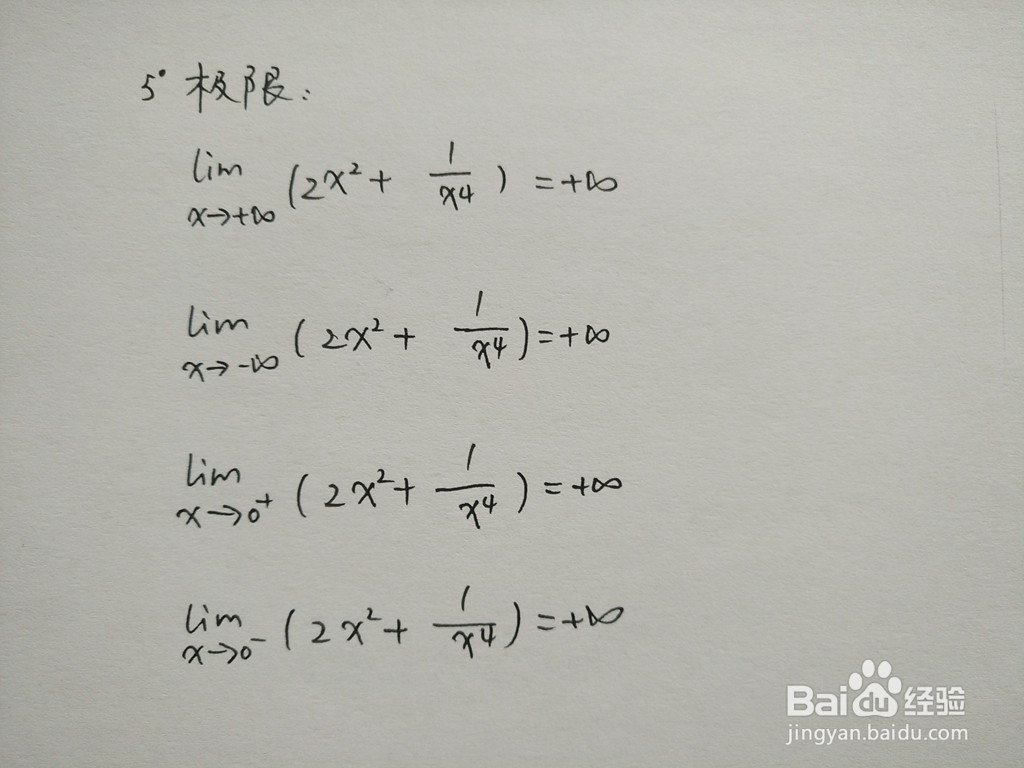 5° 极限:
lim x→+∞ (2x² + 1/x⁴) = +∞
lim x→-∞ (2x² + 1/x⁴) = +∞
lim x→0⁺ (2x² + 1/x⁴) = +∞
lim x→0⁻ (2x² + 1/x⁴) = +∞
Baidu经验
jingyan.baidu.com